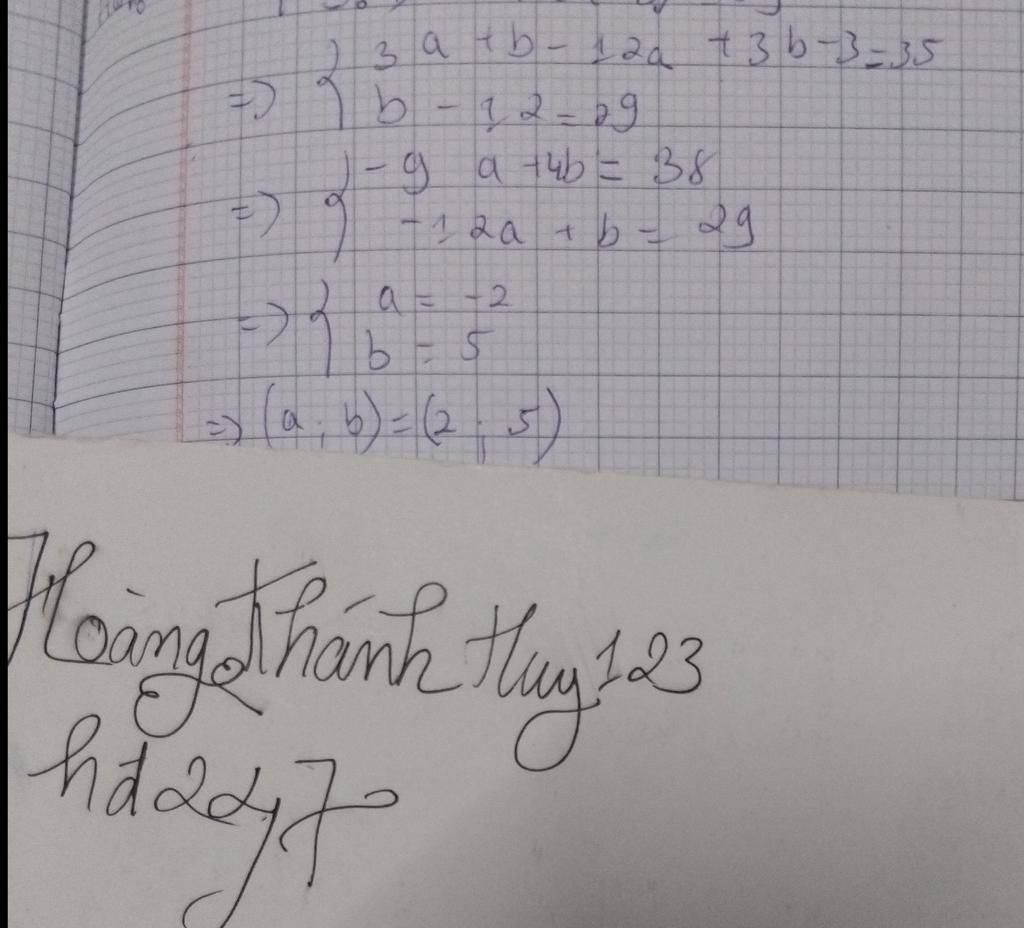 => { 3a + b - 12a + 3b - 3 = 35
b - 12 = 29
=> { -9a + 4b = 38
-12a + b = 29
=> { a = -2
b = 5
=> (a; b) = (2; 5)
Hoàng Khánh Huy 123